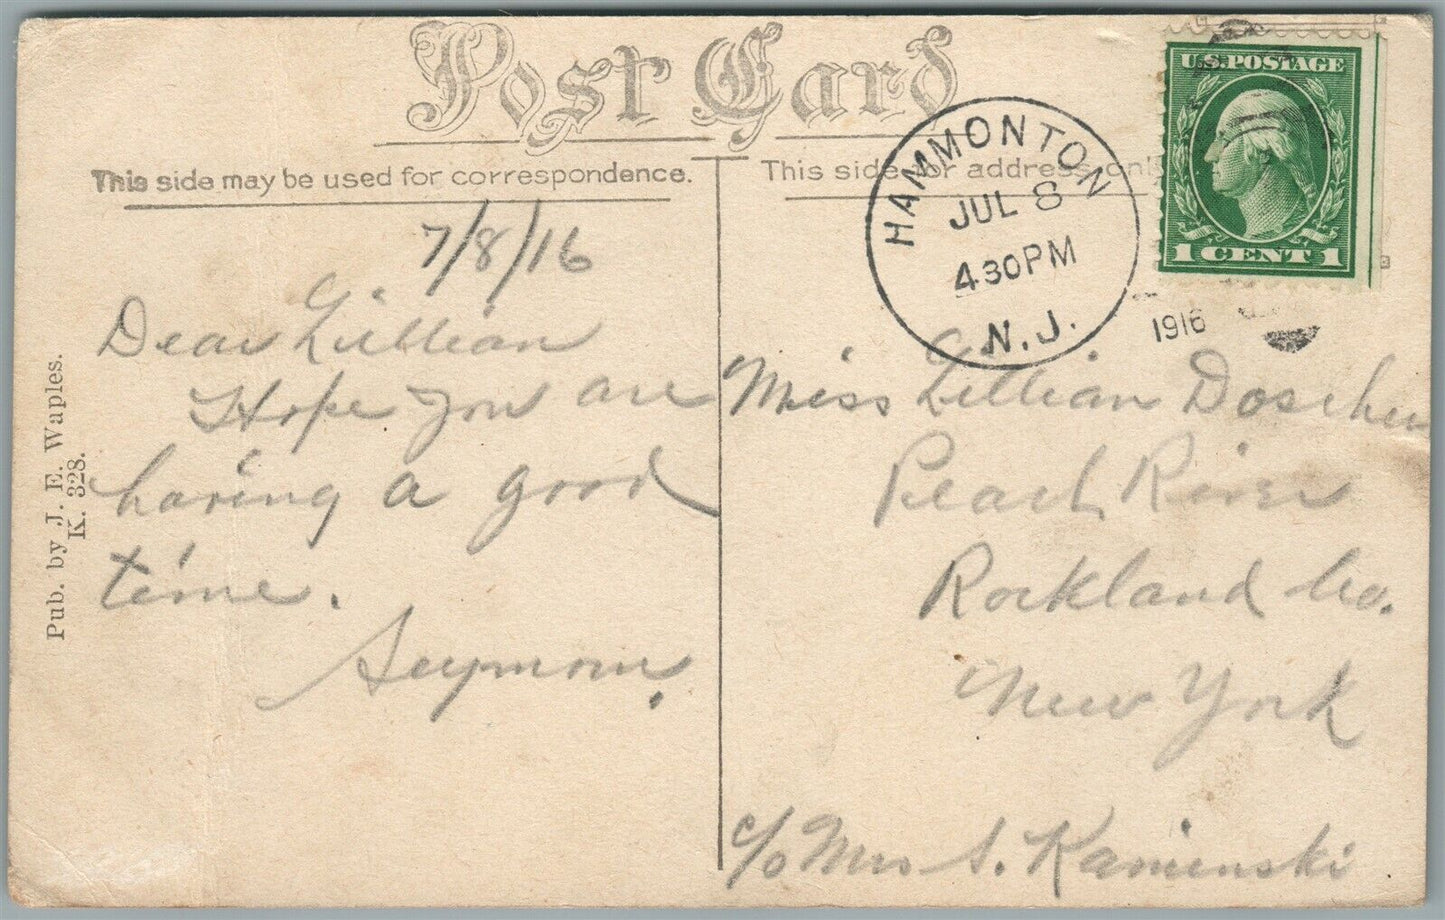 Post Card
This side may be used for correspondence.
This side for address only
7/8/16
Dear Lillian
Hope you are
having a good
time.
Seymour.
Pub. by J. E. Waples.
K. 328.
HAMMONTON
JUL 8
4 30 PM
N.J.
1916
U.S. POSTAGE
1 CENT 1
Miss Lillian Doscher
Pearl River
Rockland Co.
New York
c/o Mrs S. Kaminski